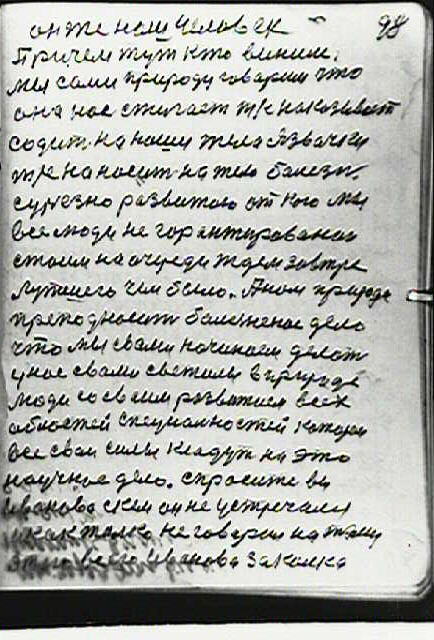 он же наш человек 98
Причем тут кто виним.
мы сами природу говорим что
она нас сжигает т/к наказывает
содит на наши тела язвачку
т/к наносит на тело болезн.
сурезно развитою от кого мы
все люди не горантированаи
стоим на очереди ждем завтре
лутшего чем было. А нам природа
преподносит болезненое дело
что мы свами начинаем делат
унас свами светилы в природе
люди сосвоим развитием всех
областей специальностей которыи
все свои силы кладут на это
научное дело. спросите вы
Иванова скем он не устречался
и как толко не говорил на тему
этого всего Иванова закалка